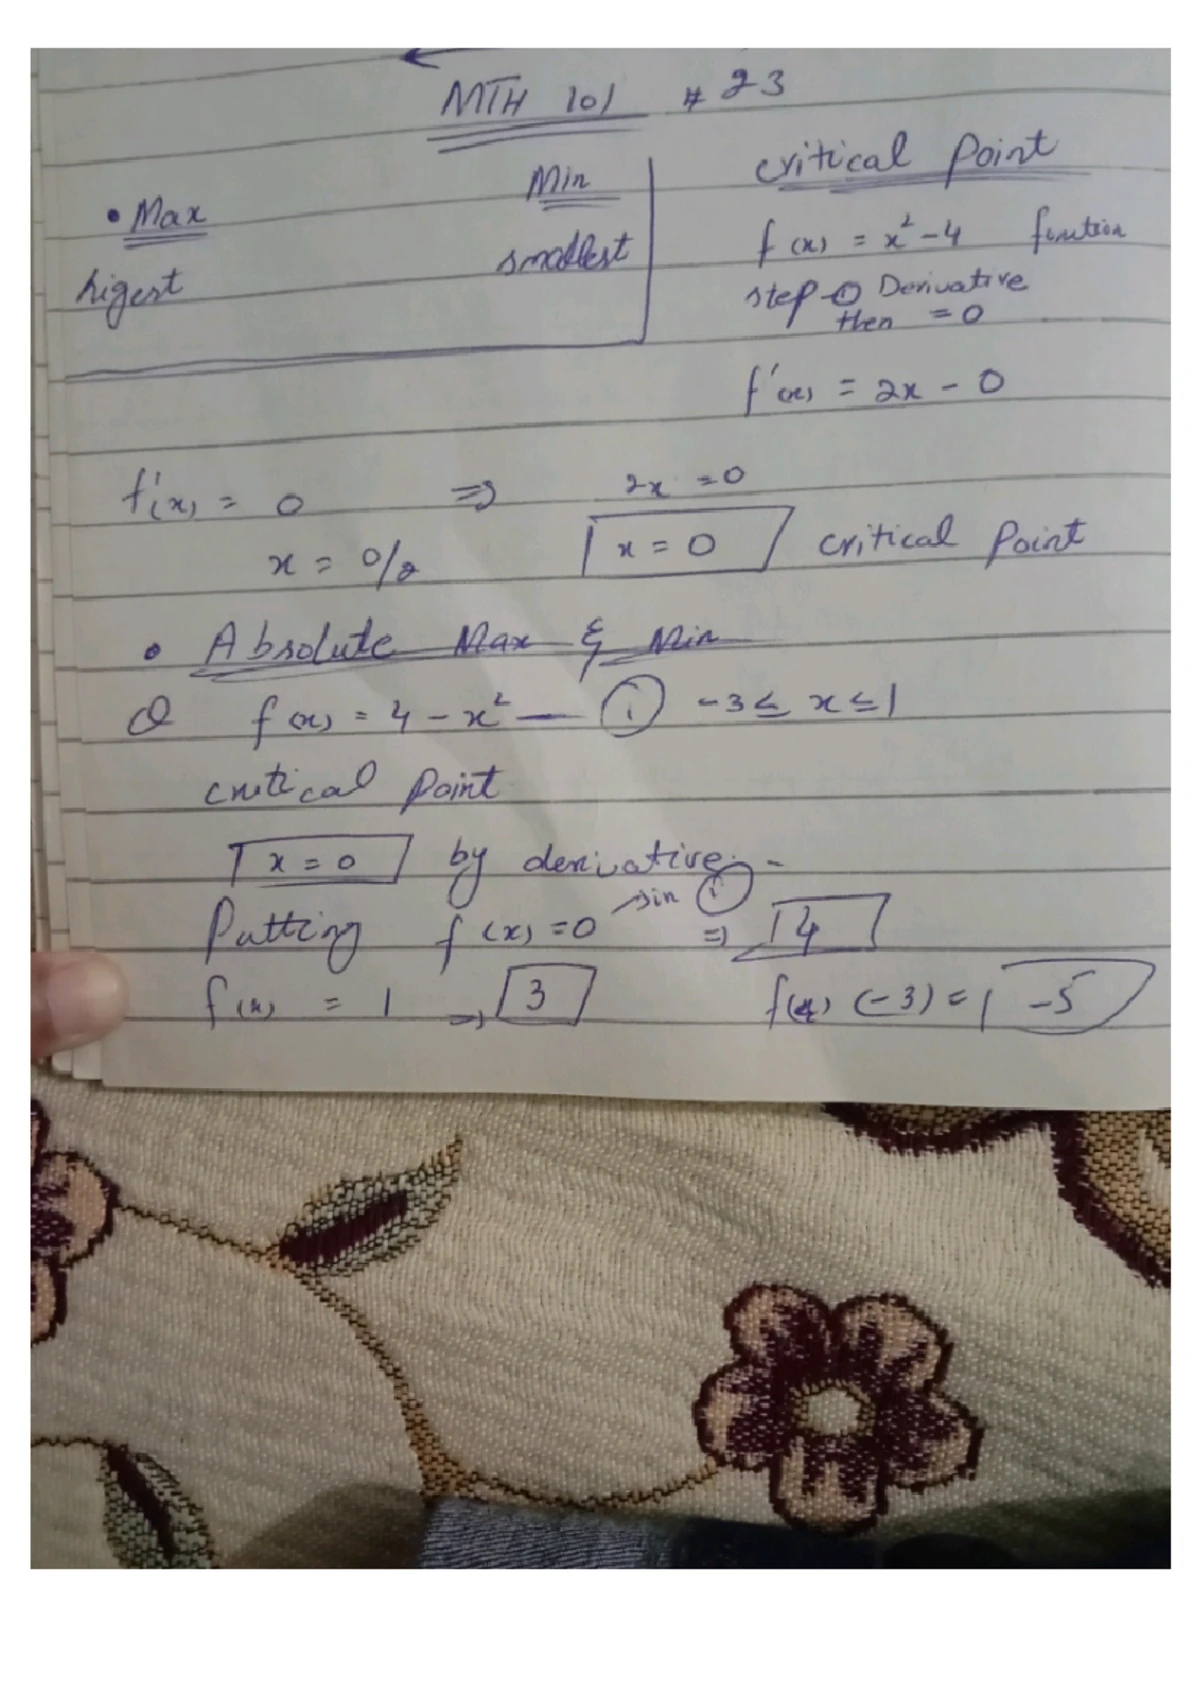 MTH 101 # 23
• Max Min
higest smallest
critical Point
f(x) = x² - 4 function
step ① Derivative
then = 0
f'(x) = 2x - 0
f'(x) = 0 ⇒ 2x = 0
x = 0/2 x = 0 critical Point
• Absolute Max & Min
Q f(x) = 4 - x² — ① -3 ≤ x ≤ 1
critical Point
x = 0 by derivative. -
Putting f(x) = 0 → in ① ⇒ 4
f(x) = 1 ⇒ 3 f(x) (-3) = -5